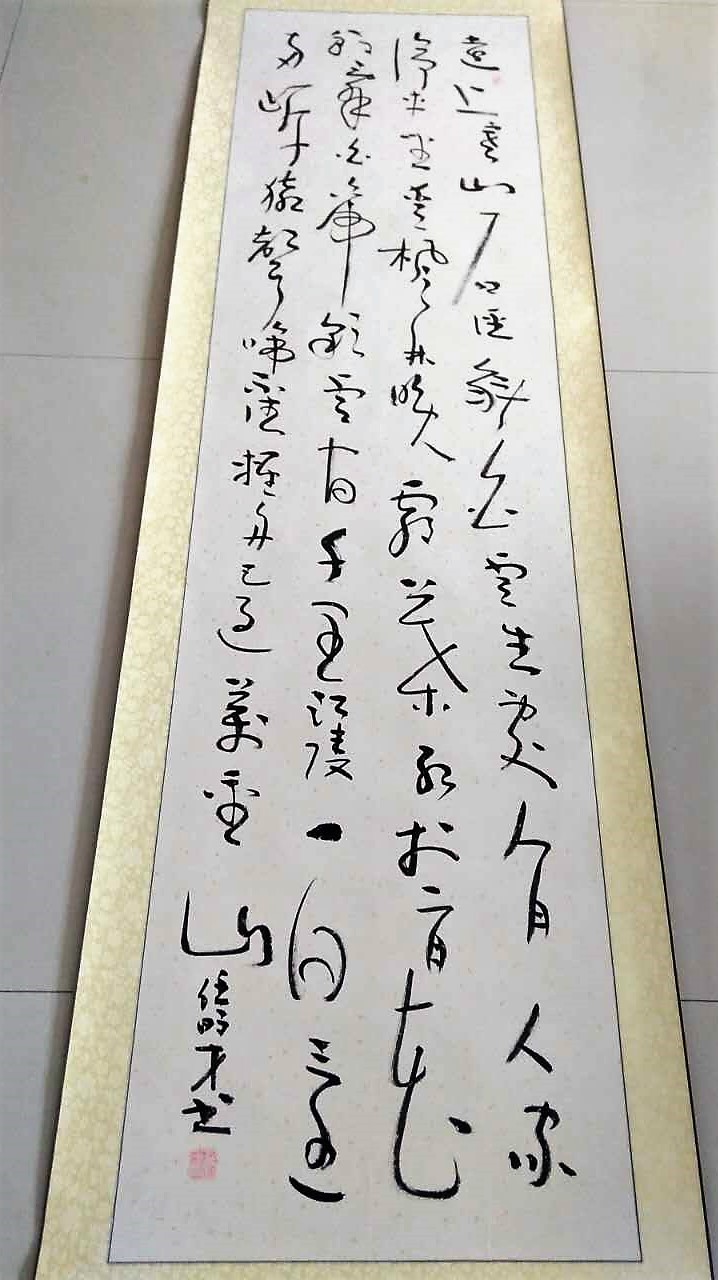 遠上寒山石徑斜白雲生處有人家
停車坐愛楓林晚霜葉紅於二月花
朝辭白帝彩雲間千里江陵一日還
兩岸猿聲啼不住輕舟已過萬重山
任明才書